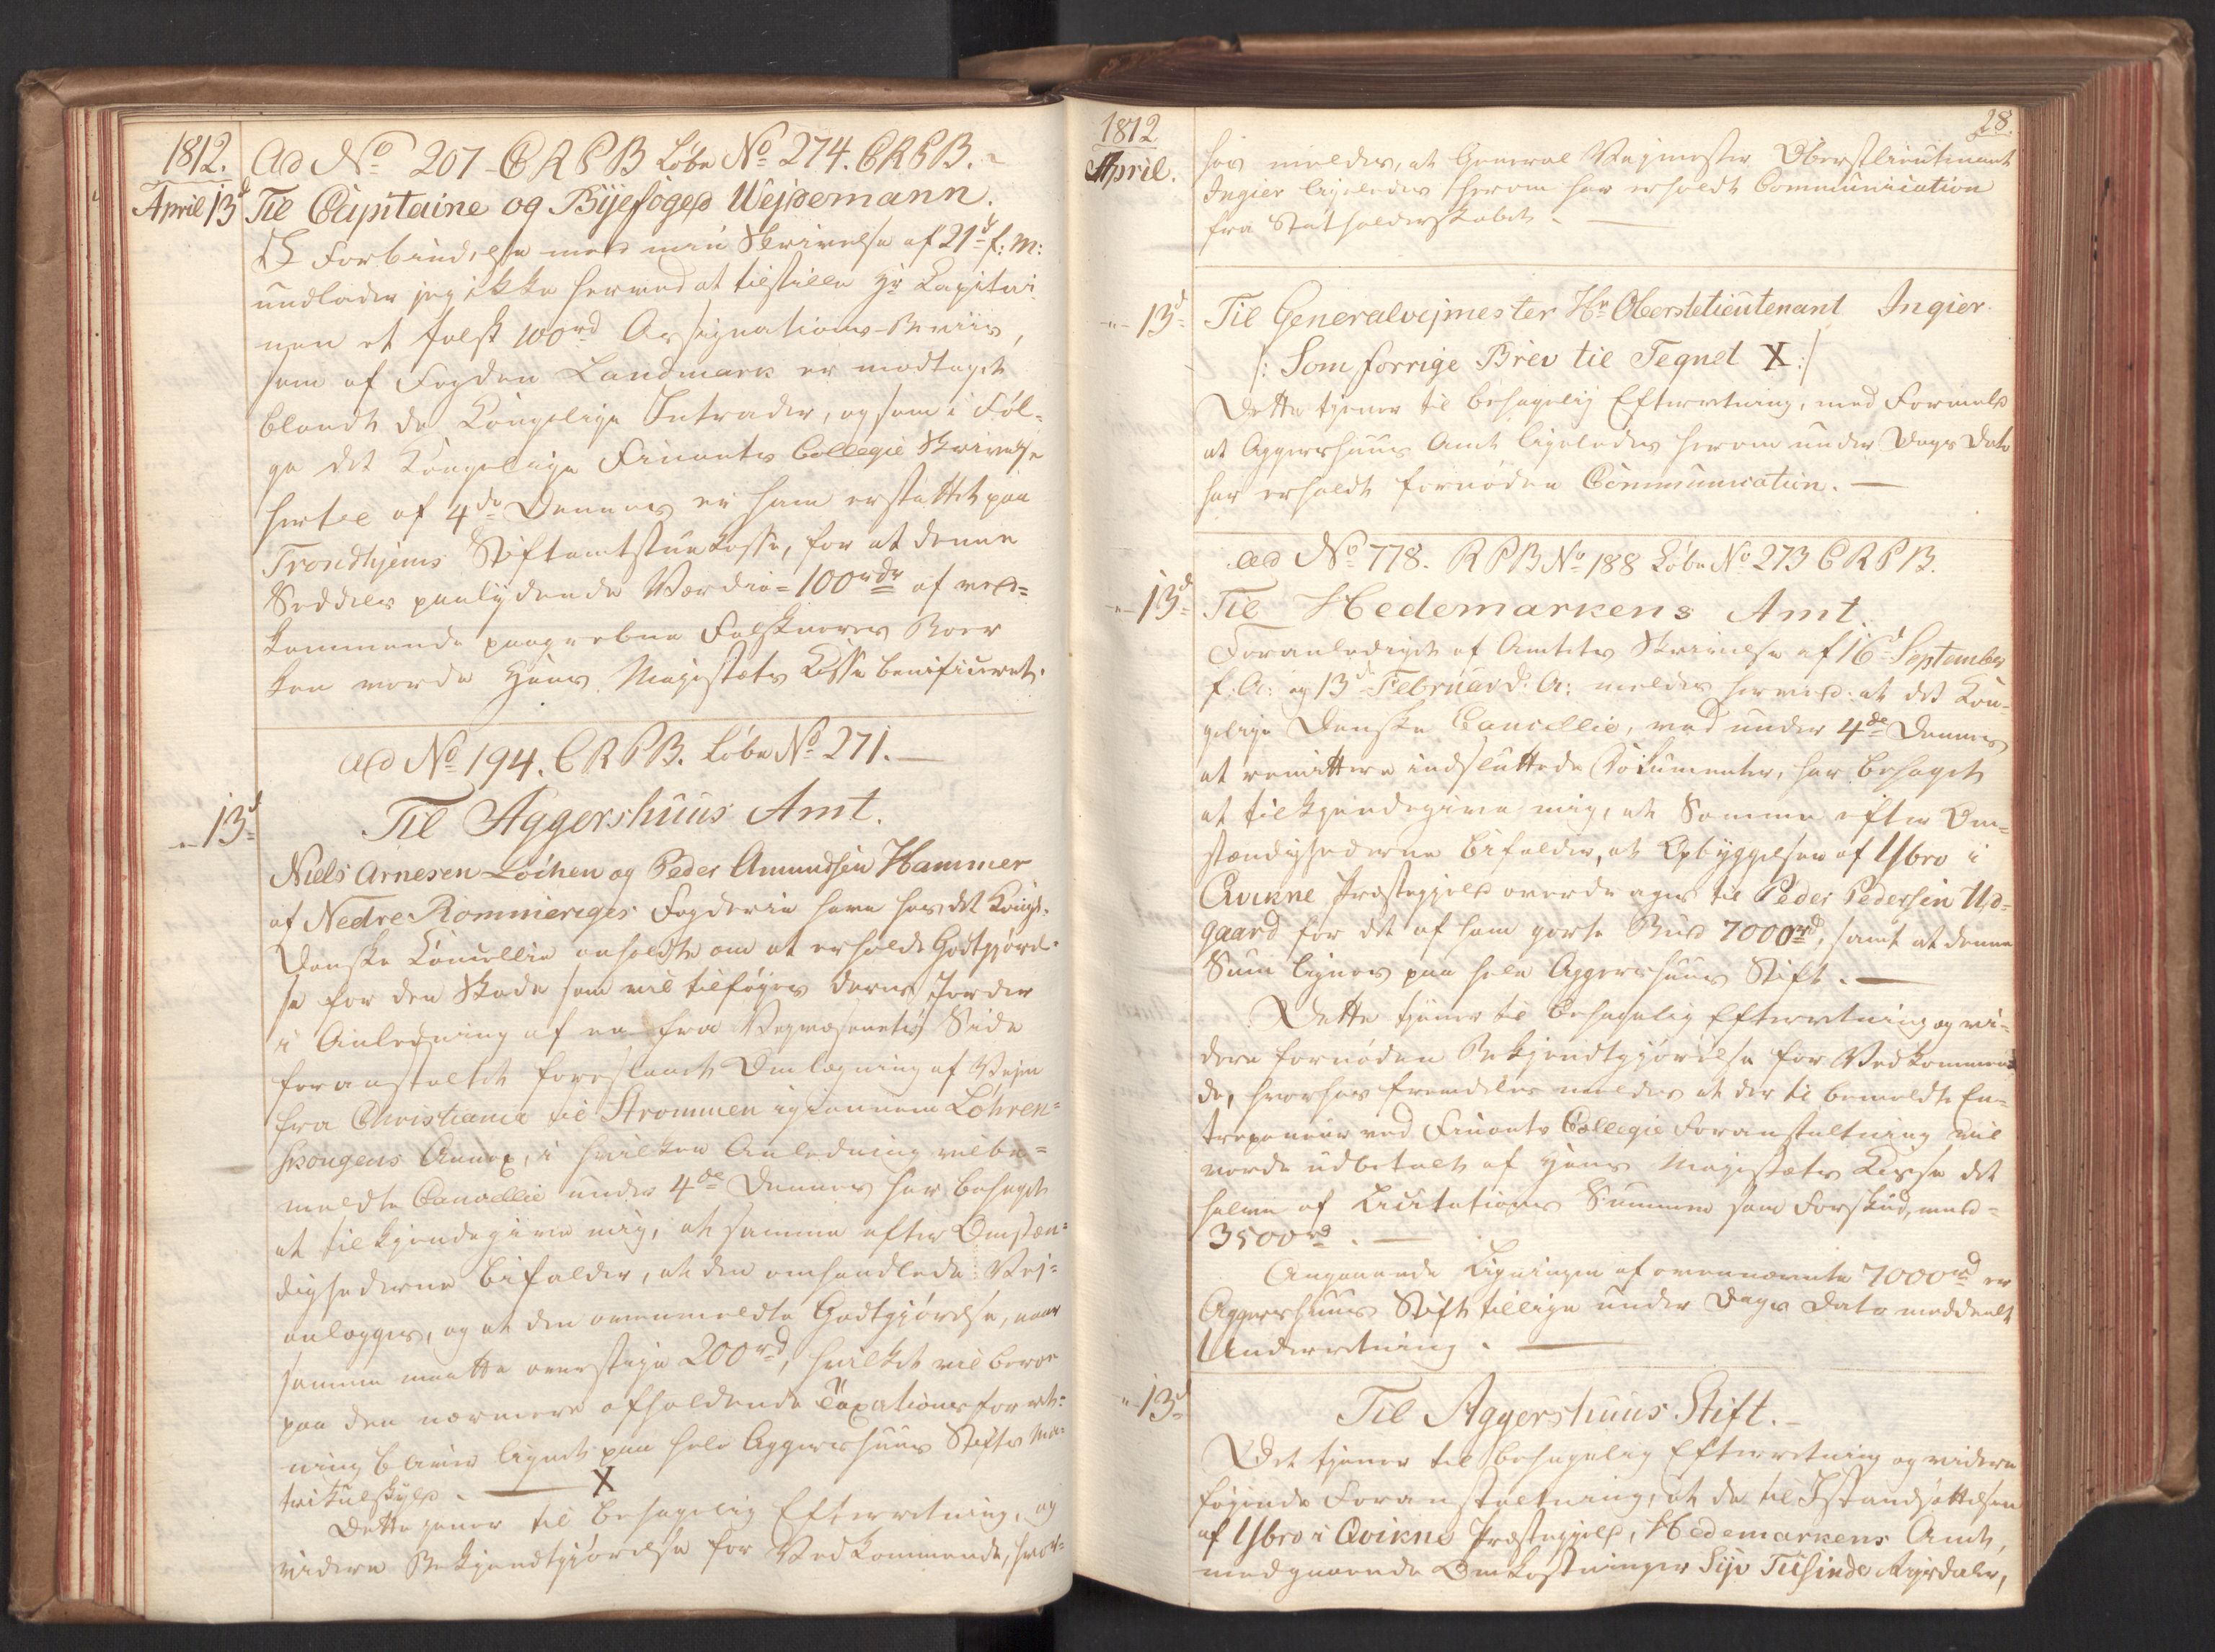 1812.
April 13d
Ad No 207 - C R P B Løbe No 274. C R P B.
Til Capitaine og Byefoged Wejdemann.
I Forbindelse med min Skrivelse af 21d f: M:
undlader jeg ikke herved at tilstille Hr Capitai
nen et falsk 100rd Assignations-Beviis,
som af Fogden Landmark er modtaget
blandt de Kongelige Intrader, og som i Føl-
ge det Kongelige Finants Collegie Skrivelse
hertil af 4de Dennes er ham erstattet paa
Trondhjems Stiftamtstuekasse, for at denne
Seddels paalydende Værdie = 100rdr af ved-
kommende paagrebne Falskneres Boer
kan vorde Hans Majestæts Kasse benificeret.
ad No 194. C R P B. Løbe No 271.
13d
Til Aggershuus Amt.
Niels Arnesen Løchen og Peder Amundsen Hammer
af Nedre Rommeriges Fogderie have hos det Kongl.
Danske Cancellie anholdt om at erholde Godtgjørel-
se for den Skade som vil tilføyes deres Jorder
i Anledning af en fra Vegvæsenets Side
foranstaltet forestaaet Omlægning af Vejen
fra Christiania til Strømmen igiennem Løhren-
skougens Annex, i hvilken Anledning velbe-
meldte Cancellie under 4de Dennes har behaget
at tilkjendegive mig, at samme efter Omstæn-
dighederne bifalder, at den omhandlede Vej
anlægges, og at den ovenmeldte Godtgjørelse, naar
samme maatte overstige 200rd, hvilket vil beroe
paa den nærmere afholdende Taxationsforret-
ning bliver lignet paa hele Aggershuus Stifts Ma-
trikulskyld. X
Dette tjener til behagelig Efterretning, og
videre Bekjendtgjørelse for Vedkommende, hvor-
1812
April.
28.
hos meldes, at General Vejmester Oberstlieutenant
Ingier ligeledes herom har erholdt Communication
fra Statholderskabet.
13d
Til Generalvejmester Hr Oberstlieutenant Ingier.
/: Som forrige Brev til Tegnet X :/
Dette tjener til behagelig Efterretning, med Formeld
at Aggershuus Amt ligeledes herom under Dags Dato
har erholdt fornøden Communication.
ad No 778. R P B No 188 Løbe No 273 C R P B.
13d
Til Hedemarkens Amt.
Foranlediget af Amtets Skrivelse af 16d September
f: A: og 13d Februar d: A: meldes herved: at det Kon-
gelige Danske Cancellie, ved under 4de Dennes
at remittere indsluttede Documenter, har behaget
at tilkjendegive mig, at Samme efter Om-
stændighederne bifalder, at Opbyggelsen af Ysbro i
Qvikne Præstegjeld overdrages til Peder Pedersen Ud-
gaard for det af ham gjorte Bud 7000rd, samt at denne
Sum lignes paa hele Aggershuus Stift.
Dette tjener til behagelig Efterretning og vi-
dere fornøden Bekjendtgjørelse for Vedkommen-
de, hvorhos fremdeles meldes at der til bemeldte En-
trepeneur ved Finants Collegie Foranstaltning vil
vorde udbetalt af Hans Majestæts Kasse det
halve af Licitations Summen som Forskud, med
3500rd.
Angaaende Ligningen af ovennævnte 7000rd er
Aggershuus Stift tillige under Dags Dato meddeelt
Underretning.
13d
Til Aggershuus Stift.
Det tjener til behagelig Efterretning og videre
føjende Foranstaltning, at de til Istandsættelsen
af Ysbro i Qvikne Præstegjeld, Hedemarkens Amt,
medgaaende Omkostninger Syv Tusinde Rigsdaler,